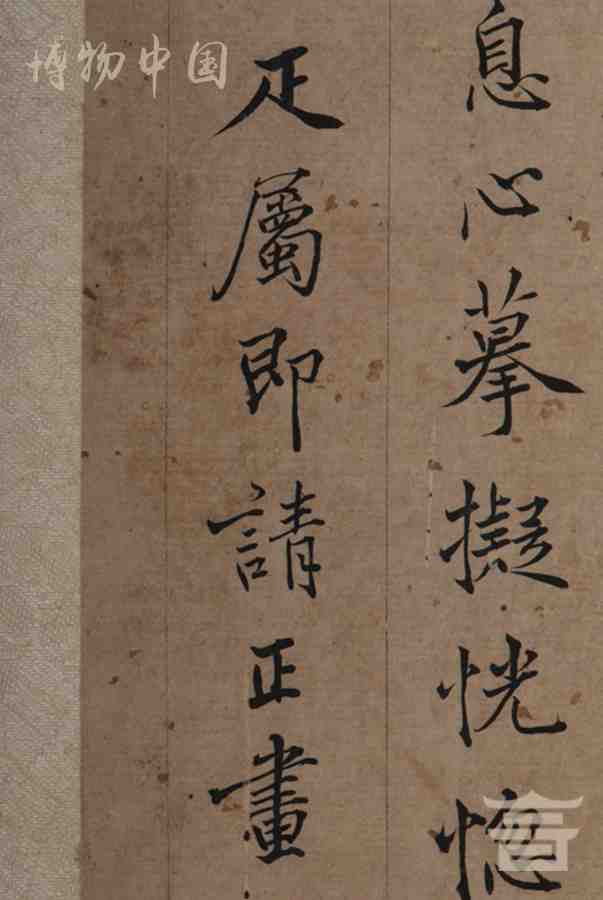 息心摹擬恍惚
疋屬即請正畫
博物中国